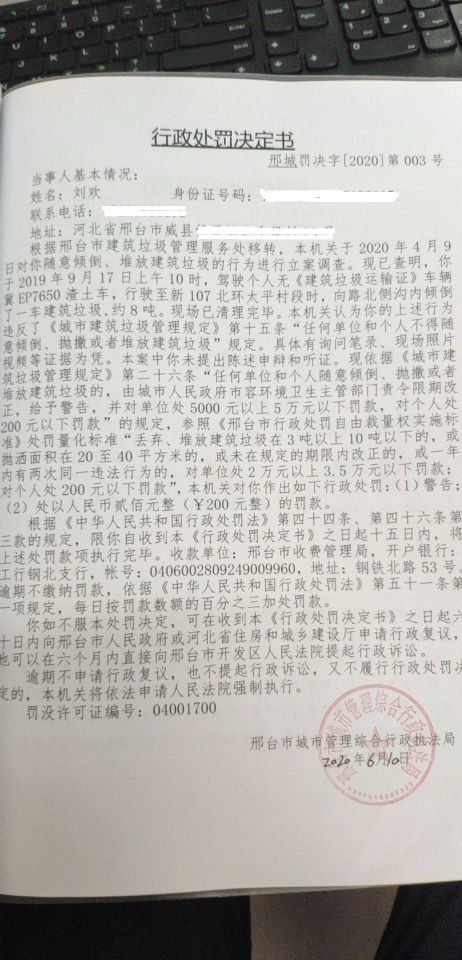 行政处罚决定书
邢城罚决字[2020]第 003 号
当事人基本情况：
姓名：刘欢 身份证号码：
联系电话：
地址：河北省邢台市威县
根据邢台市建筑垃圾管理服务处移转，本机关于 2020 年 4 月 9
日对你随意倾倒、堆放建筑垃圾的行为进行立案调查。现已查明，你
于 2019 年 9 月 17 日上午 10 时，驾驶个人无《建筑垃圾运输证》车辆
冀 EP7650 渣土车，行驶至新 107 北环太平村段时，向路北侧沟内倾倒
了一车建筑垃圾，约 8 吨。现场已清理完毕。本机关认为你的上述行为
违反了《城市建筑垃圾管理规定》第十五条“任何单位和个人不得随意
倾倒、抛撒或者堆放建筑垃圾”规定。具体有询问笔录、现场照片
视频等证据为凭。本案中你未提出陈述申辩和听证。现依据《城市建
筑垃圾管理规定》第二十六条“任何单位和个人随意倾倒、抛撒或者
堆放建筑垃圾的，由城市人民政府市容环境卫生主管部门责令限期改
正，给予警告，并对单位处 5000 元以上 5 万元以下罚款，对个人处
200 元以下罚款”的规定，参照《邢台市行政处罚自由裁量权实施标
准》处罚量化标准“丢弃、堆放建筑垃圾在 3 吨以上 10 吨以下的，或
抛洒面积在 20 至 40 平方米的，或未在规定的期限内改正的，或一年
内有两次同一违法行为的，对单位处 2 万元以上 3.5 万元以下罚款；
对个人处 200 元以下罚款”，本机关对你作出如下行政处罚：(1) 警告；
(2) 处以人民币贰佰元整（￥200 元整）的罚款。
根据《中华人民共和国行政处罚法》第四十四条、第四十六条第
三款的规定，限你自收到本《行政处罚决定书》之日起十五日内，将
上述处罚款项执行完毕。收款单位：邢台市收费管理局，开户银行：
工行钢北支行，帐号：0406002809249009960，地址：钢铁北路 53 号。
逾期不缴纳罚款，依据《中华人民共和国行政处罚法》第五十一条第
一项规定，每日按罚款数额的百分之三加处罚款。
你如不服本处罚决定，可在收到本《行政处罚决定书》之日起六
十日内向邢台市人民政府或河北省住房和城乡建设厅申请行政复议，
也可以在六个月内直接向邢台市开发区人民法院提起行政诉讼。
逾期不申请行政复议，也不提起行政诉讼，又不履行行政处罚决
定的，本机关将依法申请人民法院强制执行。
罚没许可证编号：04001700
邢台市城市管理综合行政执法局
2020 年 6 月 10 日